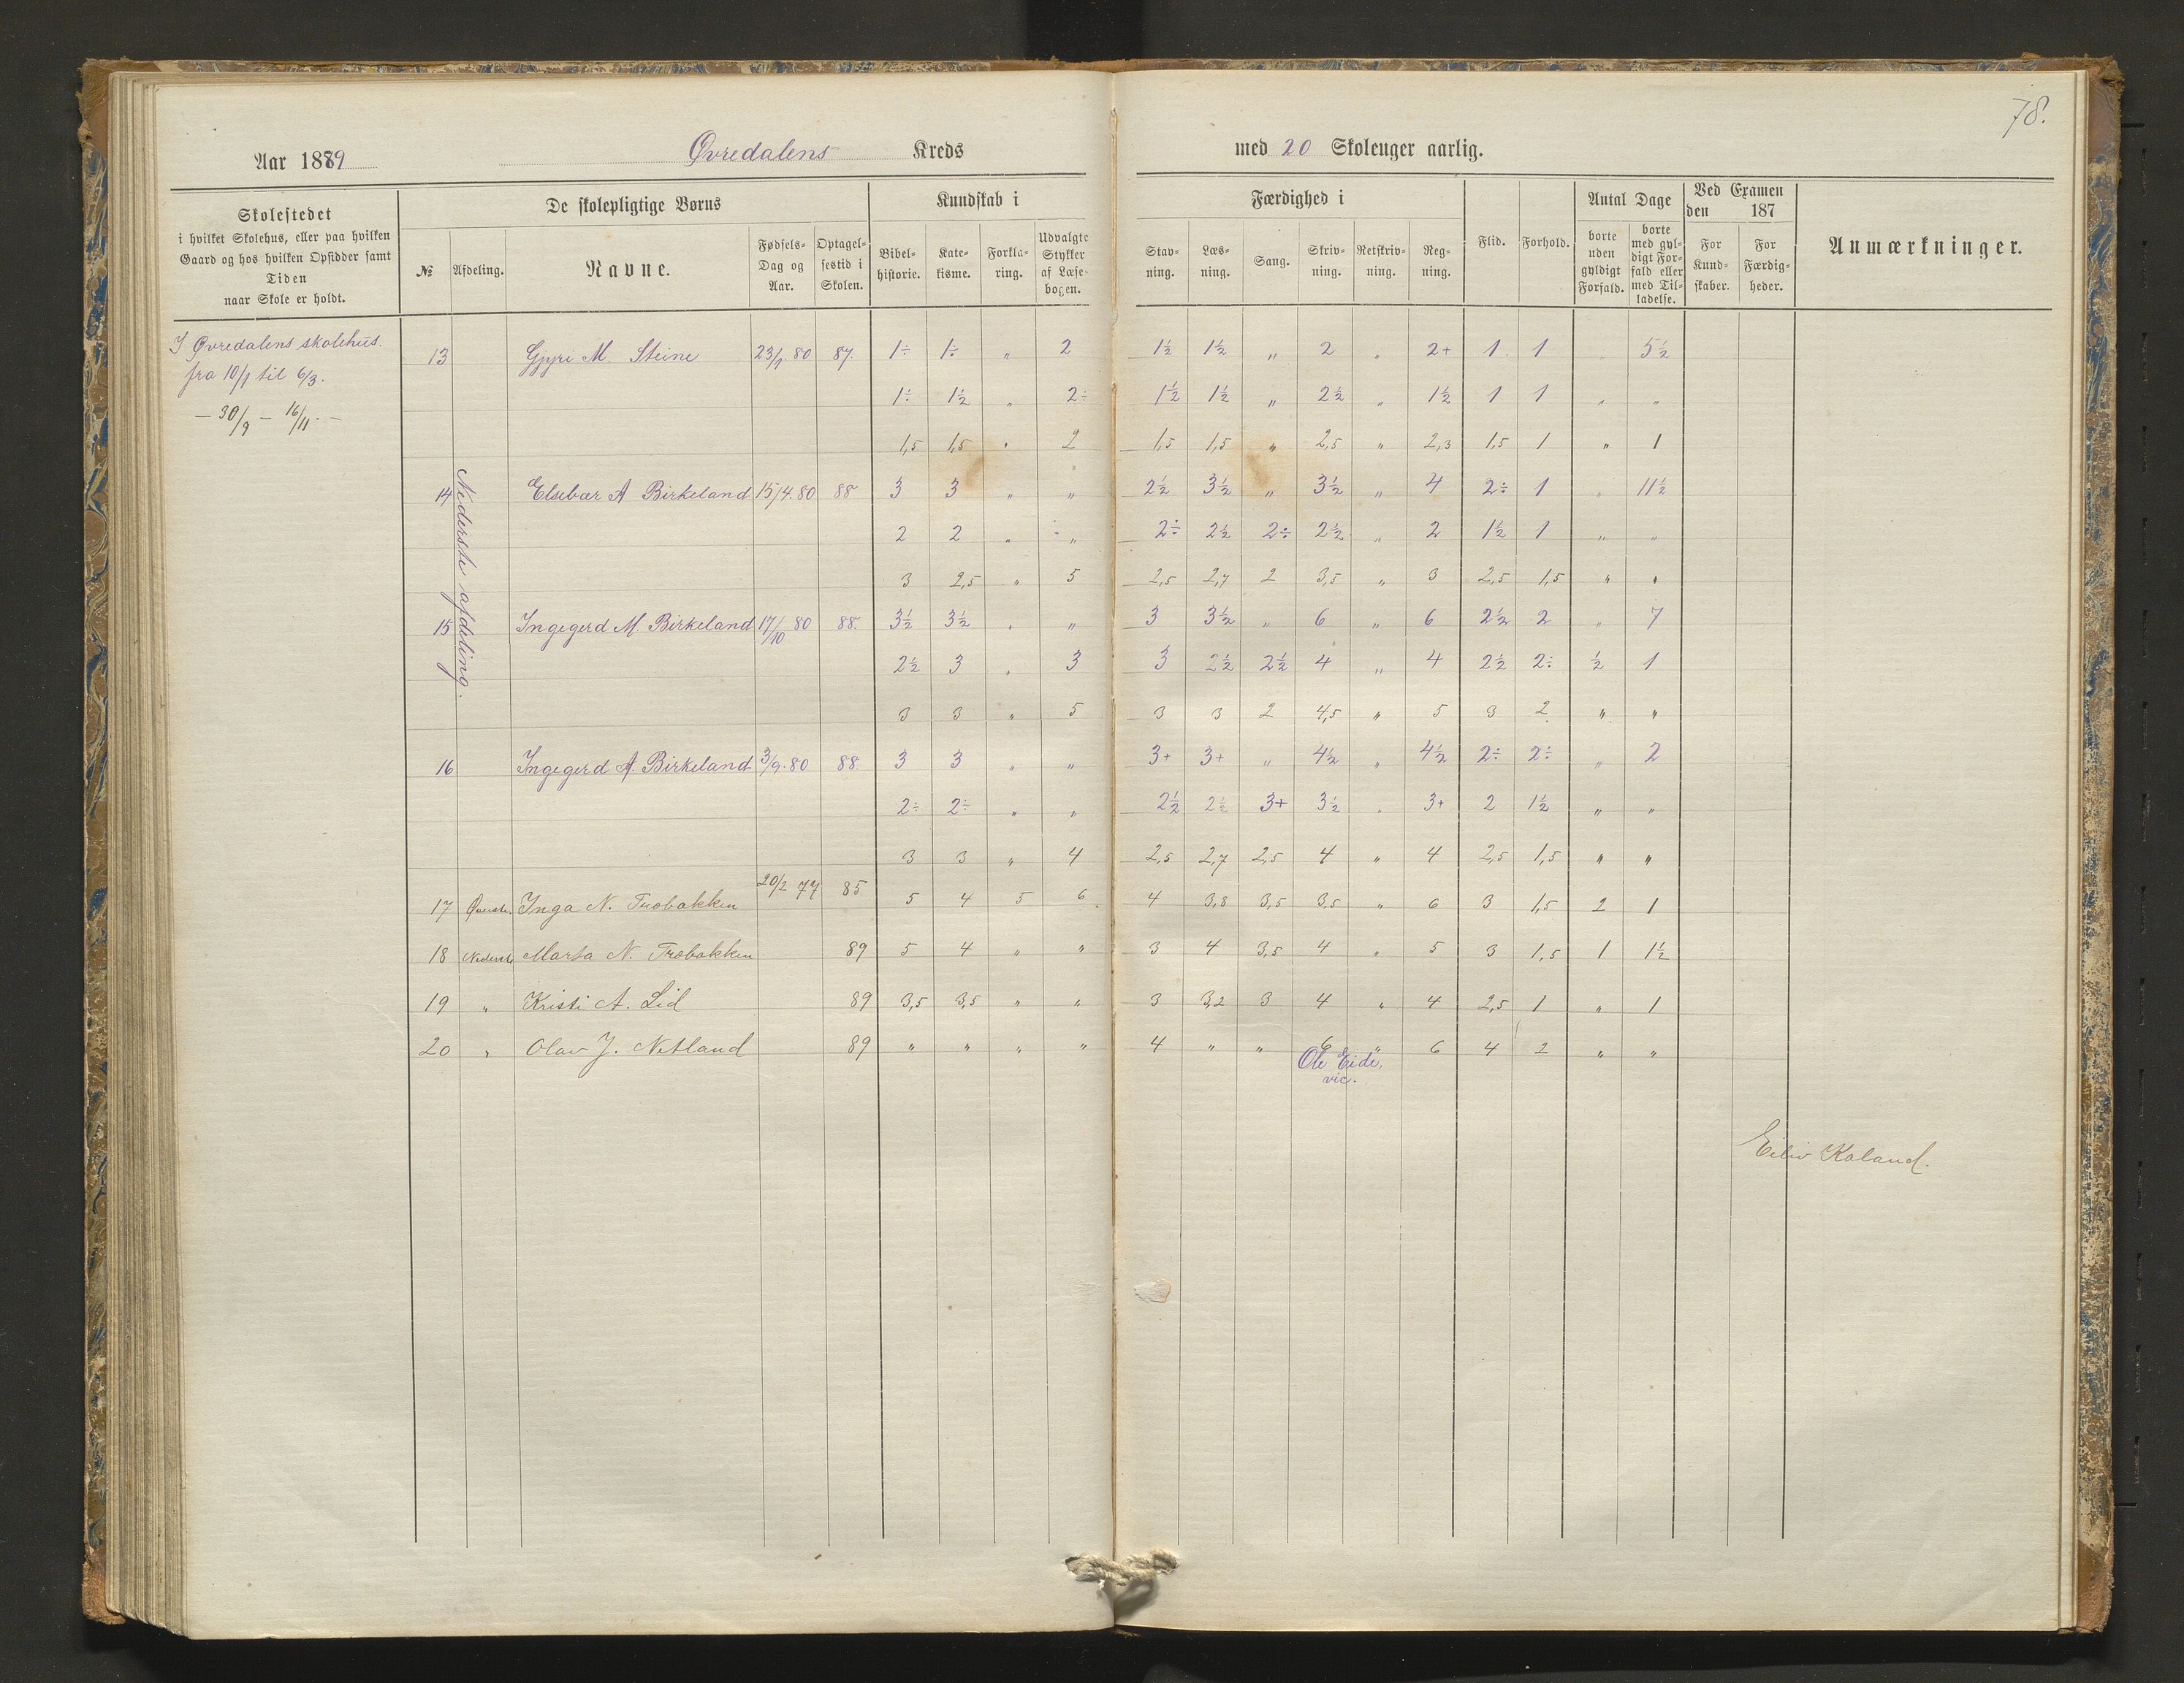 78.
Aar 1889 Øvredalens Kreds med 20 Skoleuger aarlig.
Skolestedet
i hvilket Skolehus, eller paa hvilken
Gaard og hos hvilken Opsidder samt
Tiden
naar Skole er holdt.
De skolepligtige Børns
№ Afdeling. Navne. Fødsels-Dag og Aar. Optagel-sestid i Skolen.
Kundskab i
Bibel-historie. Kate-kisme. Forkla-ring. Udvalgte Stykker af Læse-bogen.
Færdighed i
Stav-ning. Læs-ning. Sang. Skriv-ning. Retskriv-ning. Reg-ning.
Flid. Forhold.
Antal Dage
borte uden gyldigt Forfald. borte med gyl-digt For-fald eller med Til-ladelse.
Ved Examen
den 187
For Kund-skaber. For Færdig-heder.
Anmærkninger.
I Øvredalens skolehus.
fra 10/1 til 6/3.
— 30/9 — 16/11. —
Nederste afdeling.
13 Gyri M. Steine 23/1 80 87. 1÷ 1÷ " 2 1½ 1½ " 2 " 2+ 1 1 " 5½
1÷ 1½ " 2÷ 1½ 1½ " 2½ " 1½ 1 1 " "
1,5 1,5 " 2 1,5 1,5 " 2,5 " 2,3 1,5 1 " 1
14 Elsebær A Birkeland 15/4.80 88 3 3 " " 2½ 3½ " 3½ " 4 2÷ 1 " 11½
2 2 " " 2÷ 2½ 2÷ 2½ " 2 1½ 1 " "
3 2,5 " 5 2,5 2,7 2 3,5 " 3 2,5 1,5 " "
15 Ingegerd M. Birkeland 17/10 80 88. 3½ 3½ " " 3 3½ " 6 " 6 2½ 2 " 7
2½ 3 " 3 3 2½ 2½ 4 " 4 2½ 2÷ ½ 1
3 3 " 5 3 3 2 4,5 " 5 3 2 " "
16 Ingegerd A. Birkeland 3/9.80 88 3 3 " " 3+ 3+ " 4½ " 4½ 2÷ 2÷ " 2
2÷ 2÷ " " 2½ 2½ 3+ 3½ " 3+ 2 1½ " "
3 3 " 4 2,5 2,7 2,5 4 " 4 2,5 1,5 " "
17 Øverste. Inga N. Træbakken 20/2 77 85 5 4 5 6 4 3,8 3,5 3,5 " 6 3 1,5 2 1
18 Nederste Marta N. Træbakken 89 5 4 " " 3 4 3,5 4 " 5 3 1,5 1 1½
19 " Kristi A. Lid 89 3,5 3,5 " " 3 3,2 3 4 " 4 2,5 1 " 1
20 " Olav J. Netland 89 " " " " 4 " " 6 " 6 4 2 " "
Ole Eide,
vic.
Eiliv Kaland.